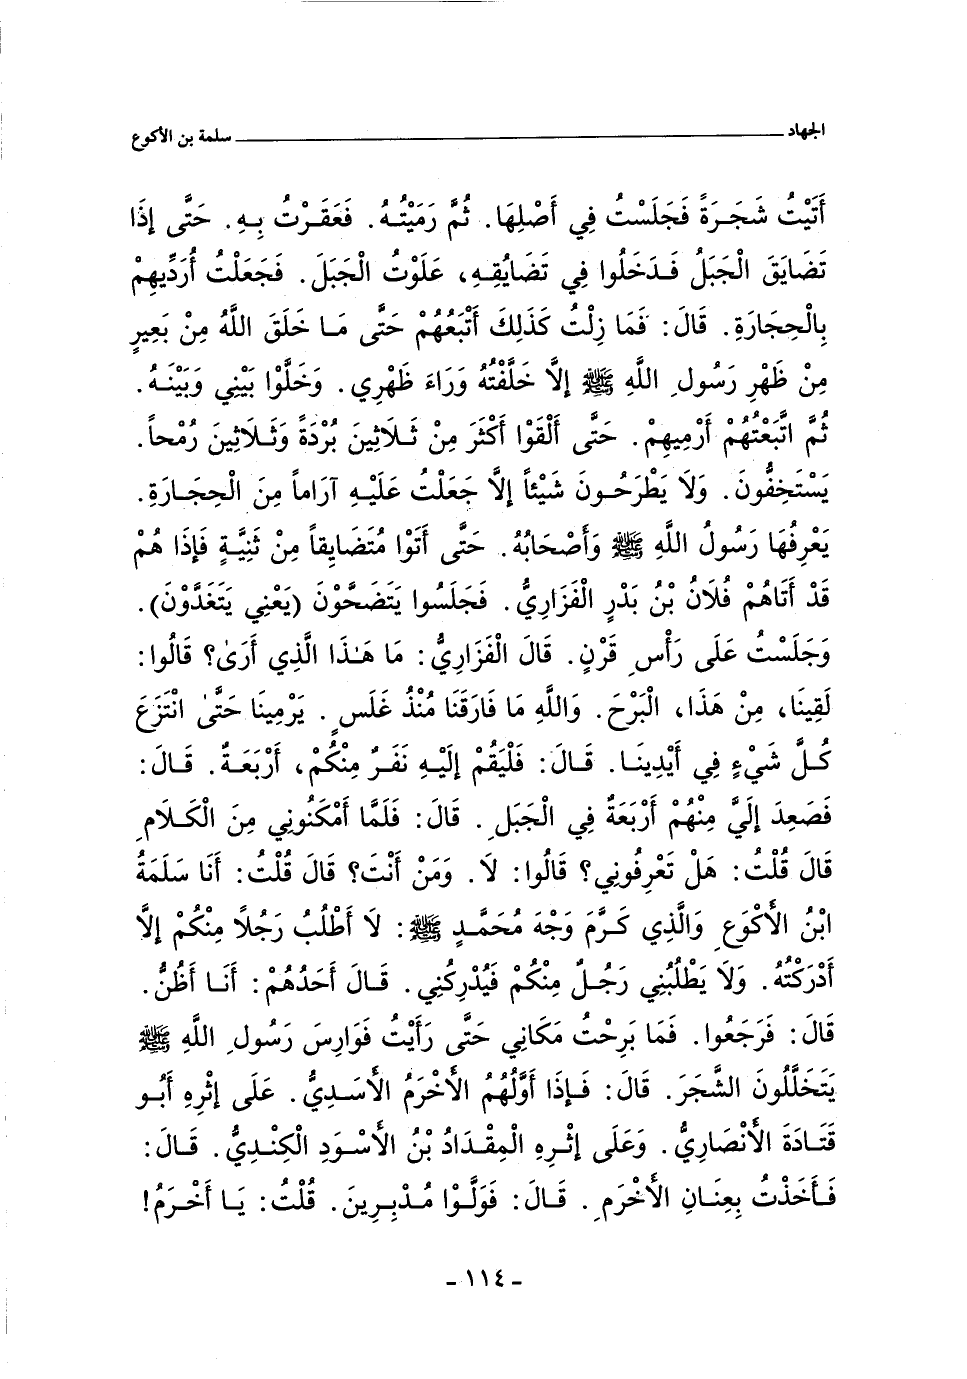 الجهاد ــــــــــــــــــــ سلمة بن الأكوع
أَتَيْتُ شَجَرَةً فَجَلَسْتُ فِي أَصْلِهَا. ثُمَّ رَمَيْتُهُ. فَعَقَرْتُ بِهِ. حَتَّى إِذَا
تَضَايَقَ الْجَبَلُ فَدَخَلُوا فِي تَضَايُقِهِ، عَلَوْتُ الْجَبَلَ. فَجَعَلْتُ أُرَدِّيهِمْ
بِالْحِجَارَةِ. قَالَ: فَمَا زِلْتُ كَذَلِكَ أَتْبَعُهُمْ حَتَّى مَا خَلَقَ اللَّهُ مِنْ بَعِيرٍ
مِنْ ظَهْرِ رَسُولِ اللَّهِ ﷺ إِلَّا خَلَّفْتُهُ وَرَاءَ ظَهْرِي. وَخَلَّوْا بَيْنِي وَبَيْنَهُ.
ثُمَّ اتَّبَعْتُهُمْ أَرْمِيهِمْ. حَتَّى أَلْقَوْا أَكْثَرَ مِنْ ثَلاثِينَ بُرْدَةً وَثَلاثِينَ رُمْحاً.
يَسْتَخِفُّونَ. وَلَا يَطْرَحُونَ شَيْئاً إِلَّا جَعَلْتُ عَلَيْهِ آرَاماً مِنَ الْحِجَارَةِ.
يَعْرِفُهَا رَسُولُ اللَّهِ ﷺ وَأَصْحَابُهُ. حَتَّى أَتَوْا مُتَضَايِقاً مِنْ ثَنِيَّةٍ فَإِذَا هُمْ
قَدْ أَتَاهُمْ فُلَانُ بْنُ بَدْرٍ الْفَزَارِيُّ. فَجَلَسُوا يَتَضَحَّوْنَ (يَعْنِي يَتَغَدَّوْنَ).
وَجَلَسْتُ عَلَى رَأْسِ قَرْنٍ. قَالَ الْفَزَارِيُّ: مَا هَذَا الَّذِي أَرَى؟ قَالُوا:
لَقِينَا، مِنْ هَذَا، الْبَرْحَ. وَاللَّهِ مَا فَارَقَنَا مُنْذُ غَلَسٍ. يَرْمِينَا حَتَّى انْتَزَعَ
كُلَّ شَيْءٍ فِي أَيْدِينَا. قَالَ: فَلْيَقُمْ إِلَيْهِ نَفَرٌ مِنْكُمْ، أَرْبَعَةٌ. قَالَ:
فَصَعِدَ إِلَيَّ مِنْهُمْ أَرْبَعَةٌ فِي الْجَبَلِ. قَالَ: فَلَمَّا أَمْكَنُونِي مِنَ الْكَلَامِ
قَالَ قُلْتُ: هَلْ تَعْرِفُونِي؟ قَالُوا: لَا. وَمَنْ أَنْتَ؟ قَالَ قُلْتُ: أَنَا سَلَمَةُ
ابْنُ الأَكْوَعِ وَالَّذِي كَرَّمَ وَجْهَ مُحَمَّدٍ ﷺ: لَا أَطْلُبُ رَجُلًا مِنْكُمْ إِلَّا
أَدْرَكْتُهُ. وَلَا يَطْلُبُنِي رَجُلٌ مِنْكُمْ فَيُدْرِكُنِي. قَالَ أَحَدُهُمْ: أَنَا أَظُنُّ.
قَالَ: فَرَجَعُوا. فَمَا بَرِحْتُ مَكَانِي حَتَّى رَأَيْتُ فَوَارِسَ رَسُولِ اللَّهِ ﷺ
يَتَخَلَّلُونَ الشَّجَرَ. قَالَ: فَإِذَا أَوَّلُهُمُ الأَخْرَمُ الأَسَدِيُّ. عَلَى إِثْرِهِ أَبُو
قَتَادَةَ الأَنْصَارِيُّ. وَعَلَى إِثْرِهِ الْمِقْدَادُ بْنُ الأَسْوَدِ الْكِنْدِيُّ. قَالَ:
فَأَخَذْتُ بِعِنَانِ الأَخْرَمِ. قَالَ: فَوَلَّوْا مُدْبِرِينَ. قُلْتُ: يَا أَخْرَمُ!
- ١١٤ -